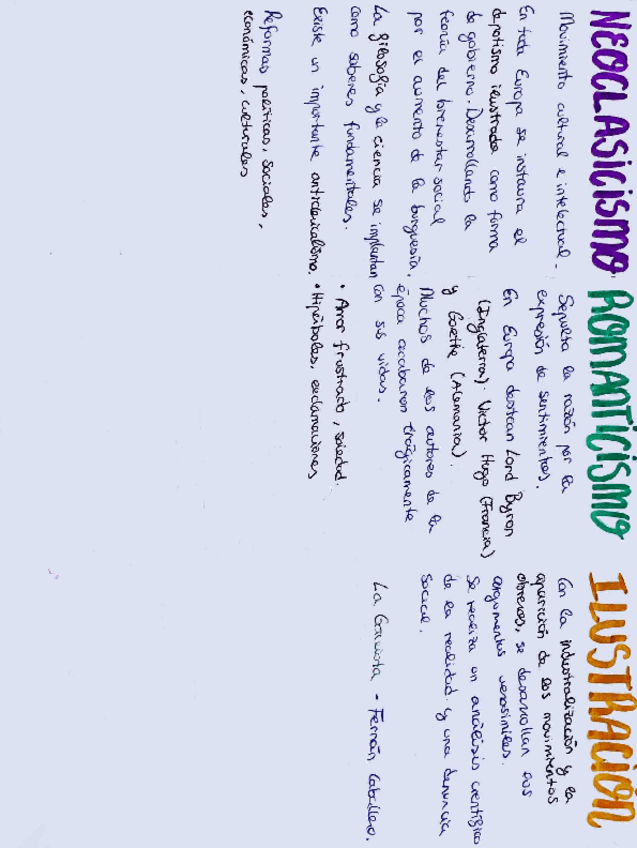 NEOCLASICISMO
Movimiento cultural e intelectual.
En toda Europa se instaura el
depotismo ilustrado como forma
de gobierno. Desarrollando la
teoría del bienestar social
por el aumento de la burguesía.
La filosofía y la ciencia se implantan
como saberes fundamentales.
Existe un importante anticlericalismo.
Reformas políticas, sociales,
económicas, culturales
ROMANTICISMO
Sepulta la razón por la
expresión de sentimientos.
En Europa destacan Lord Byron
(Inglaterra). Victor Hugo (Francia)
y Goethe (Alemania).
Muchos de los autores de la
época acabaron trágicamente
con sus vidas.
• Amor frustrado, soledad.
• Hipérboles, exclamaciones
ILUSTRACIÓN
Con la industralización y la
aparición de los movimientos
obreros, se desarrollan los
argumentos verosímiles.
Se realiza un análisis científico
de la realidad y una denuncia
social.
La Gaviota - Fernán Caballero.